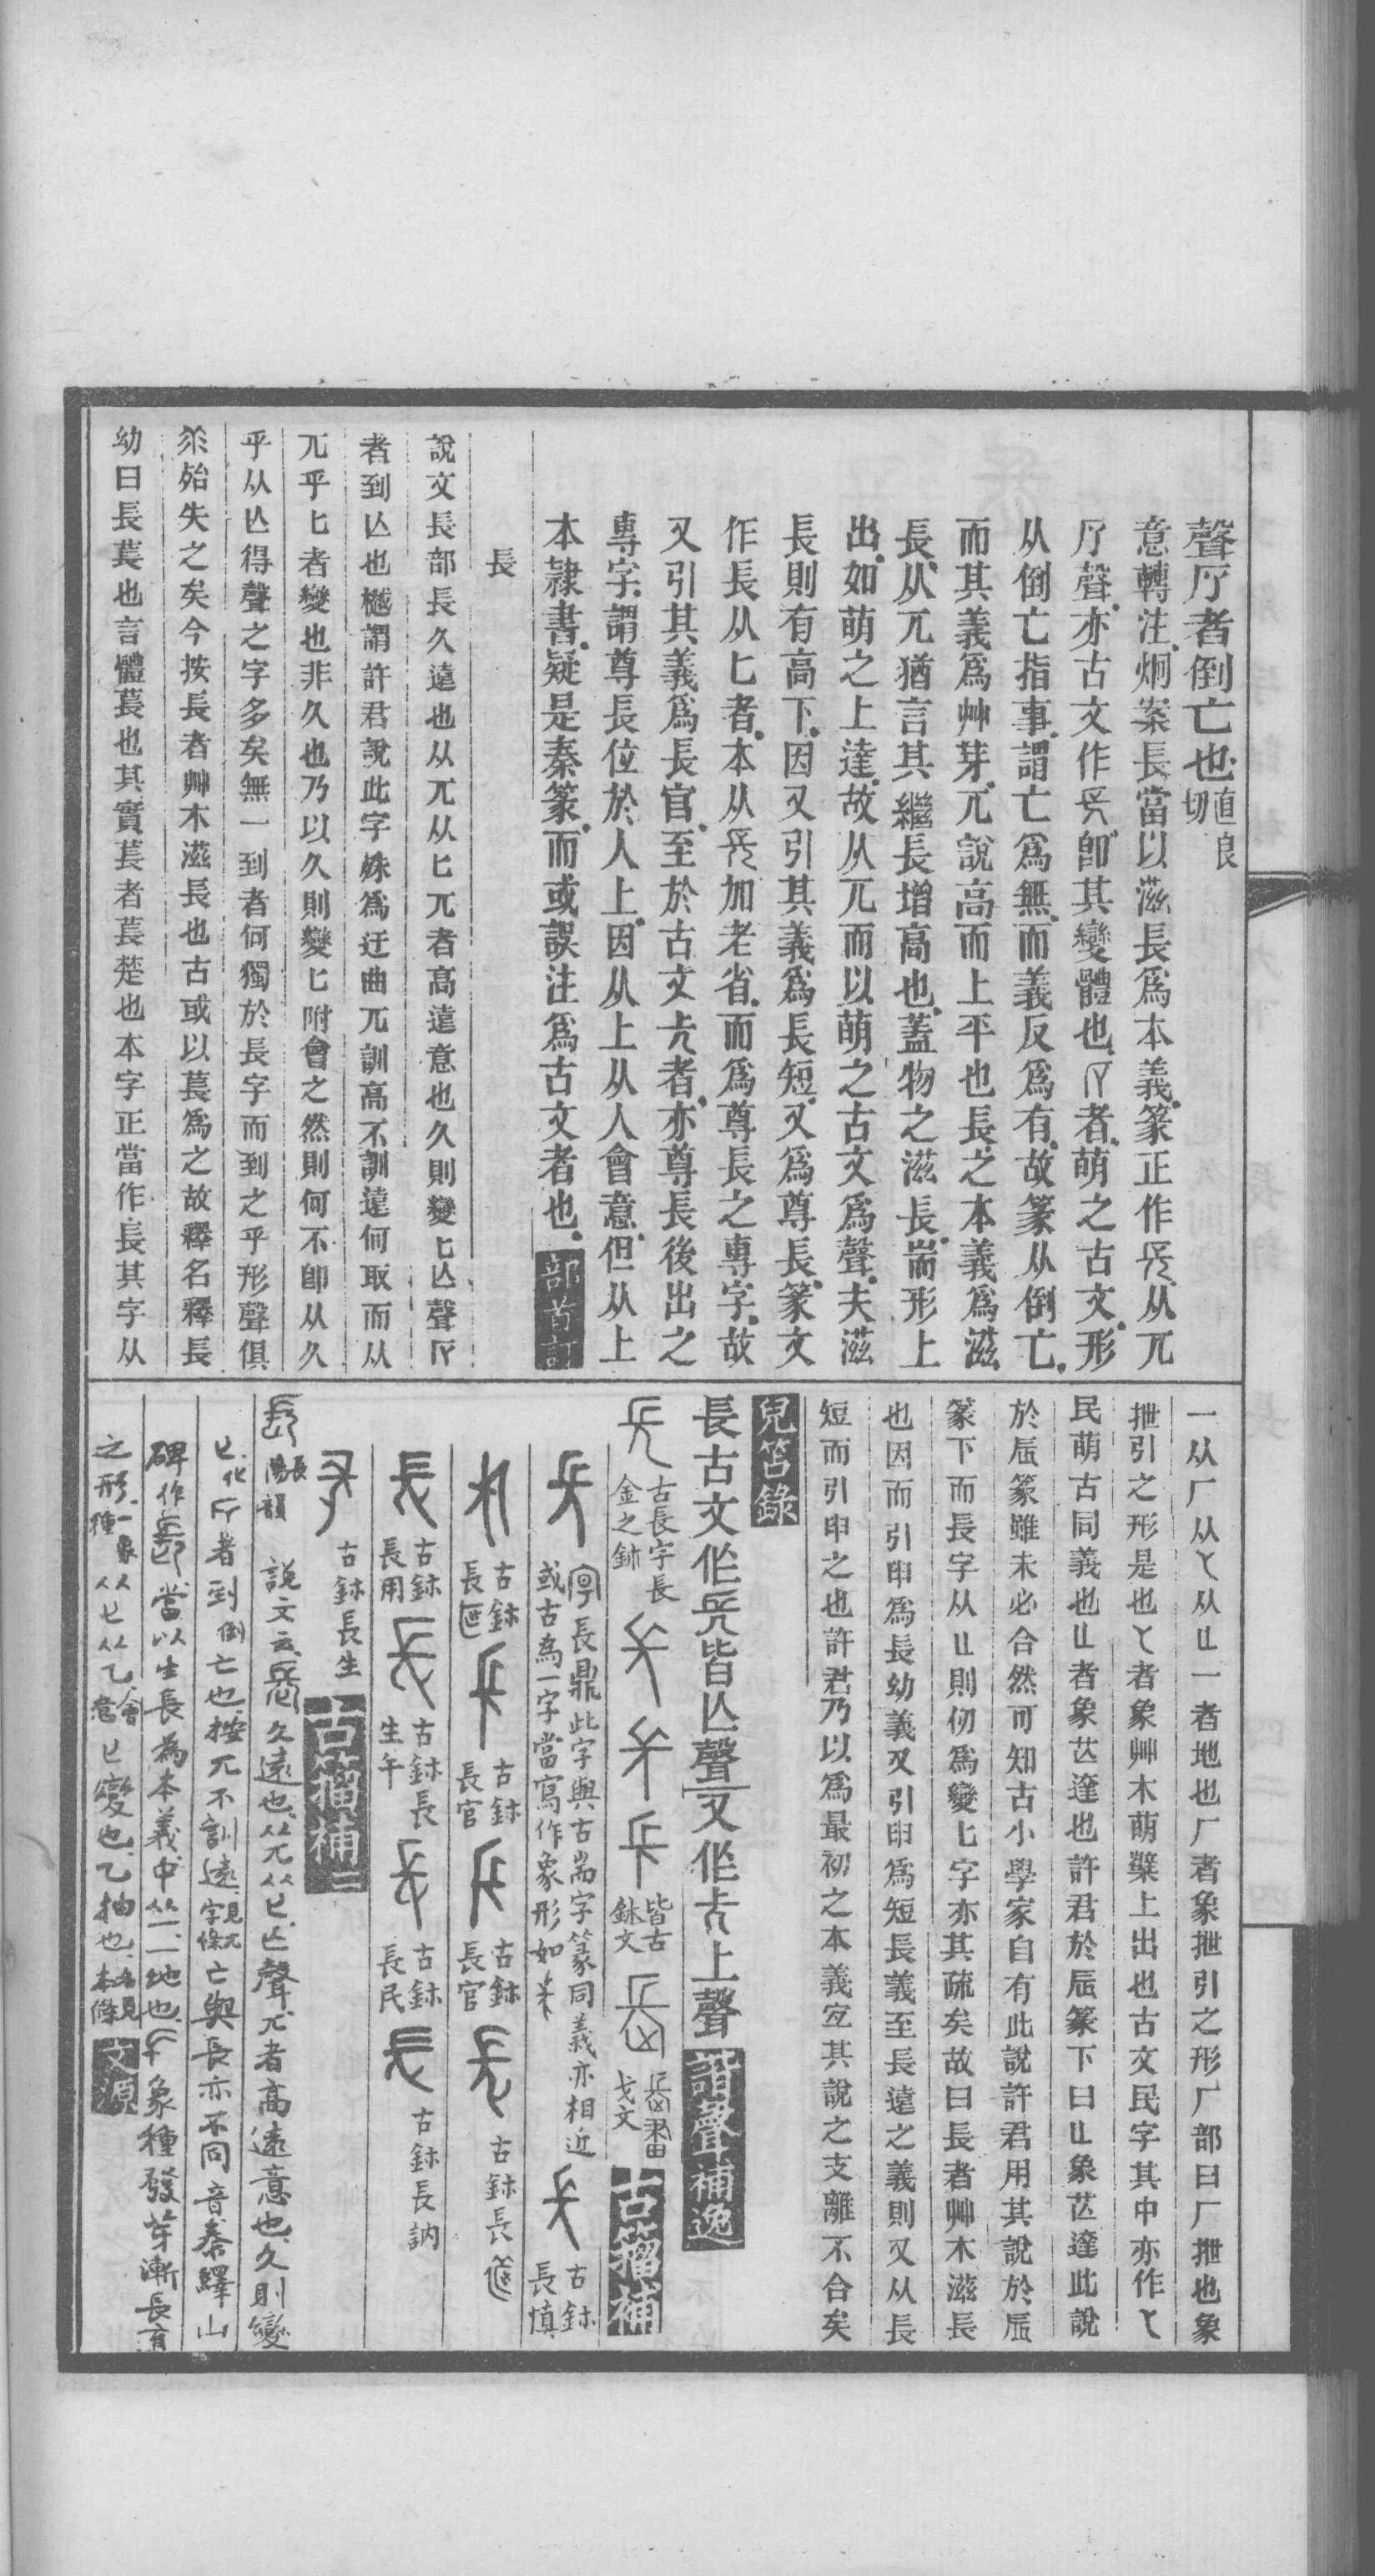 聲𠂆者倒亡也直良切
意轉注炯案長當以滋長爲本義篆正作從兀
聲亦古文作卽其變體也者萌之古文形
从倒亡指事謂亡爲無而義反爲有故篆从倒亡
而其義爲艸芽兀說高而上平也長之本義爲滋
長从兀猶言其繼長增高也蓋物之滋長耑形上
出如萌之上達故从兀而以萌之古文爲聲夫滋
長則有高下因又引其義爲長短又爲尊長篆文
作長从匕者本从加老省而爲尊長之專字故
又引其義爲長官至於古文者亦尊長後出之
專字謂尊長位於人上因从上从人會意但从上
本隷書疑是秦篆而或誤注爲古文者也部首訂
長
說文長部長久遠也从兀从匕兀者高遠意也久則變匕亾聲
者到亾也樾謂許君說此字殊爲迂曲兀訓高不訓遠何取而从
兀乎匕者變也非久也乃以久則變匕附會之然則何不卽从久
乎从亾得聲之字多矣無一到者何獨於長字而到之乎形聲俱
殆失之矣今按長者艸木滋長也古或以萇爲之故釋名釋長
幼曰長萇也言體萇也其實萇者萇楚也本字正當作長其字从
一从厂从从㞢一者地也厂者象抴引之形厂部曰厂抴也象
抴引之形是也者象艸木萌櫱上出也古文民字其中亦作
民萌古同義也者象达達也許君於篆下曰象达達此說
於篆雖未必合然可知古小學家自有此說許君用其說於
篆下而長字从則仍爲變匕字亦其疏矣故曰長者艸木滋長
也因而引申爲長幼義又引申爲短長義至長遠之義則又从長
短而引申之也許君乃以爲最初之本義宐其說之支離不合矣
兒笘錄
長古文作皆亾聲又作上聲諧聲補逸
古長字長金之鉨 皆古鉨文 戈文 古籀補
長鼎此字與古耑字篆同義亦相近或古為一字當寫作象形如 古鉨長慎
古鉨長 古鉨長官 古鉨長官 古鉨長
古鉨長用 古鉨長生午 古鉨長民 古鉨長訥
古鉨長生 古籀補二
長陽韻 說文云久遠也从兀从匕亾聲兀者高遠意也久則變
匕化者到倒亡也按兀不訓遠見兀字條亡與長亦不同音秦繹山
碑作當以生長為本義中从一一地也象種發芽漸長有
之形一象種从匕从乙會意匕變也乙抽也見各本條文源